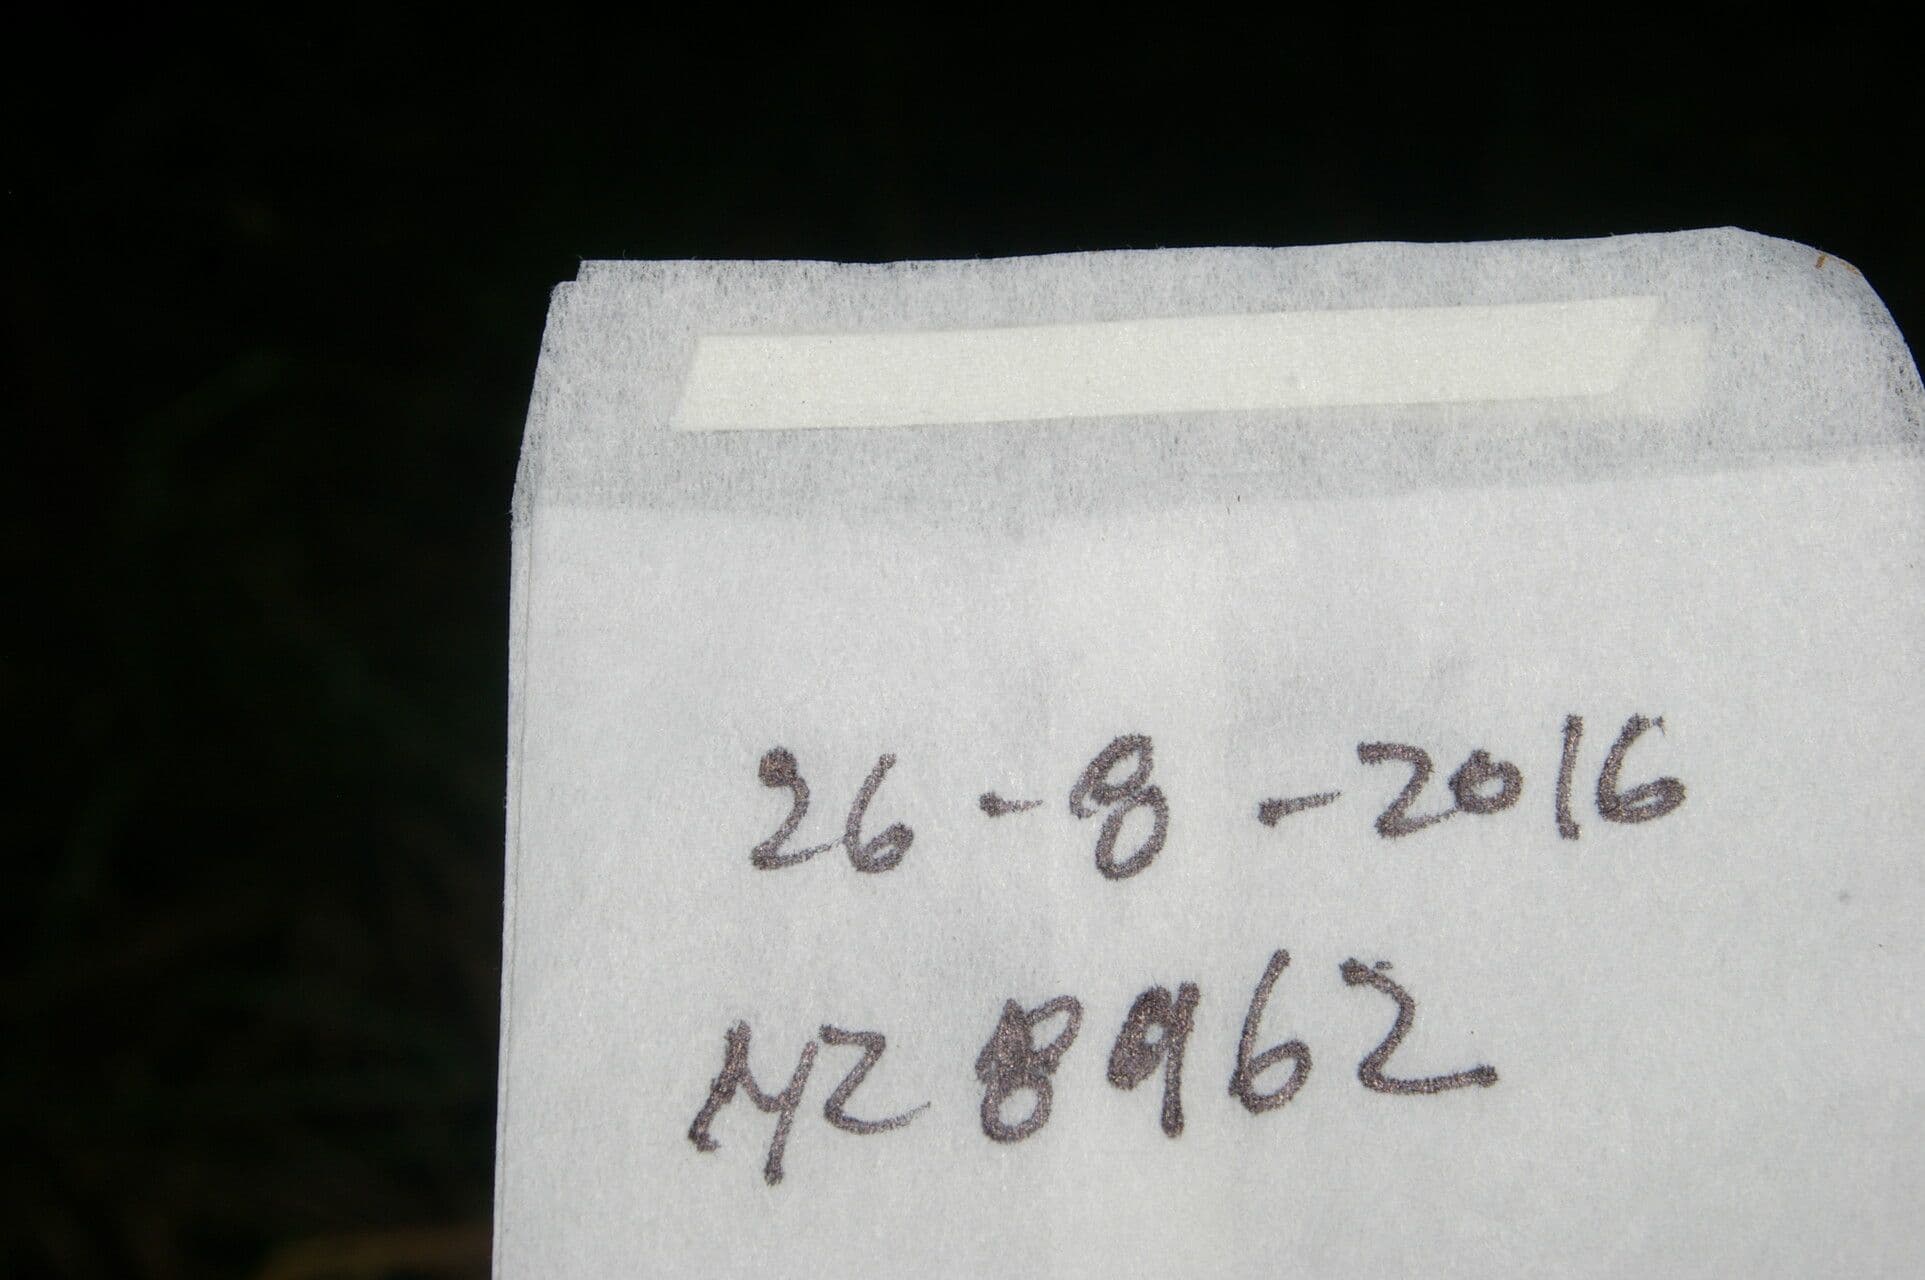 26-8-2016
MZ 8962